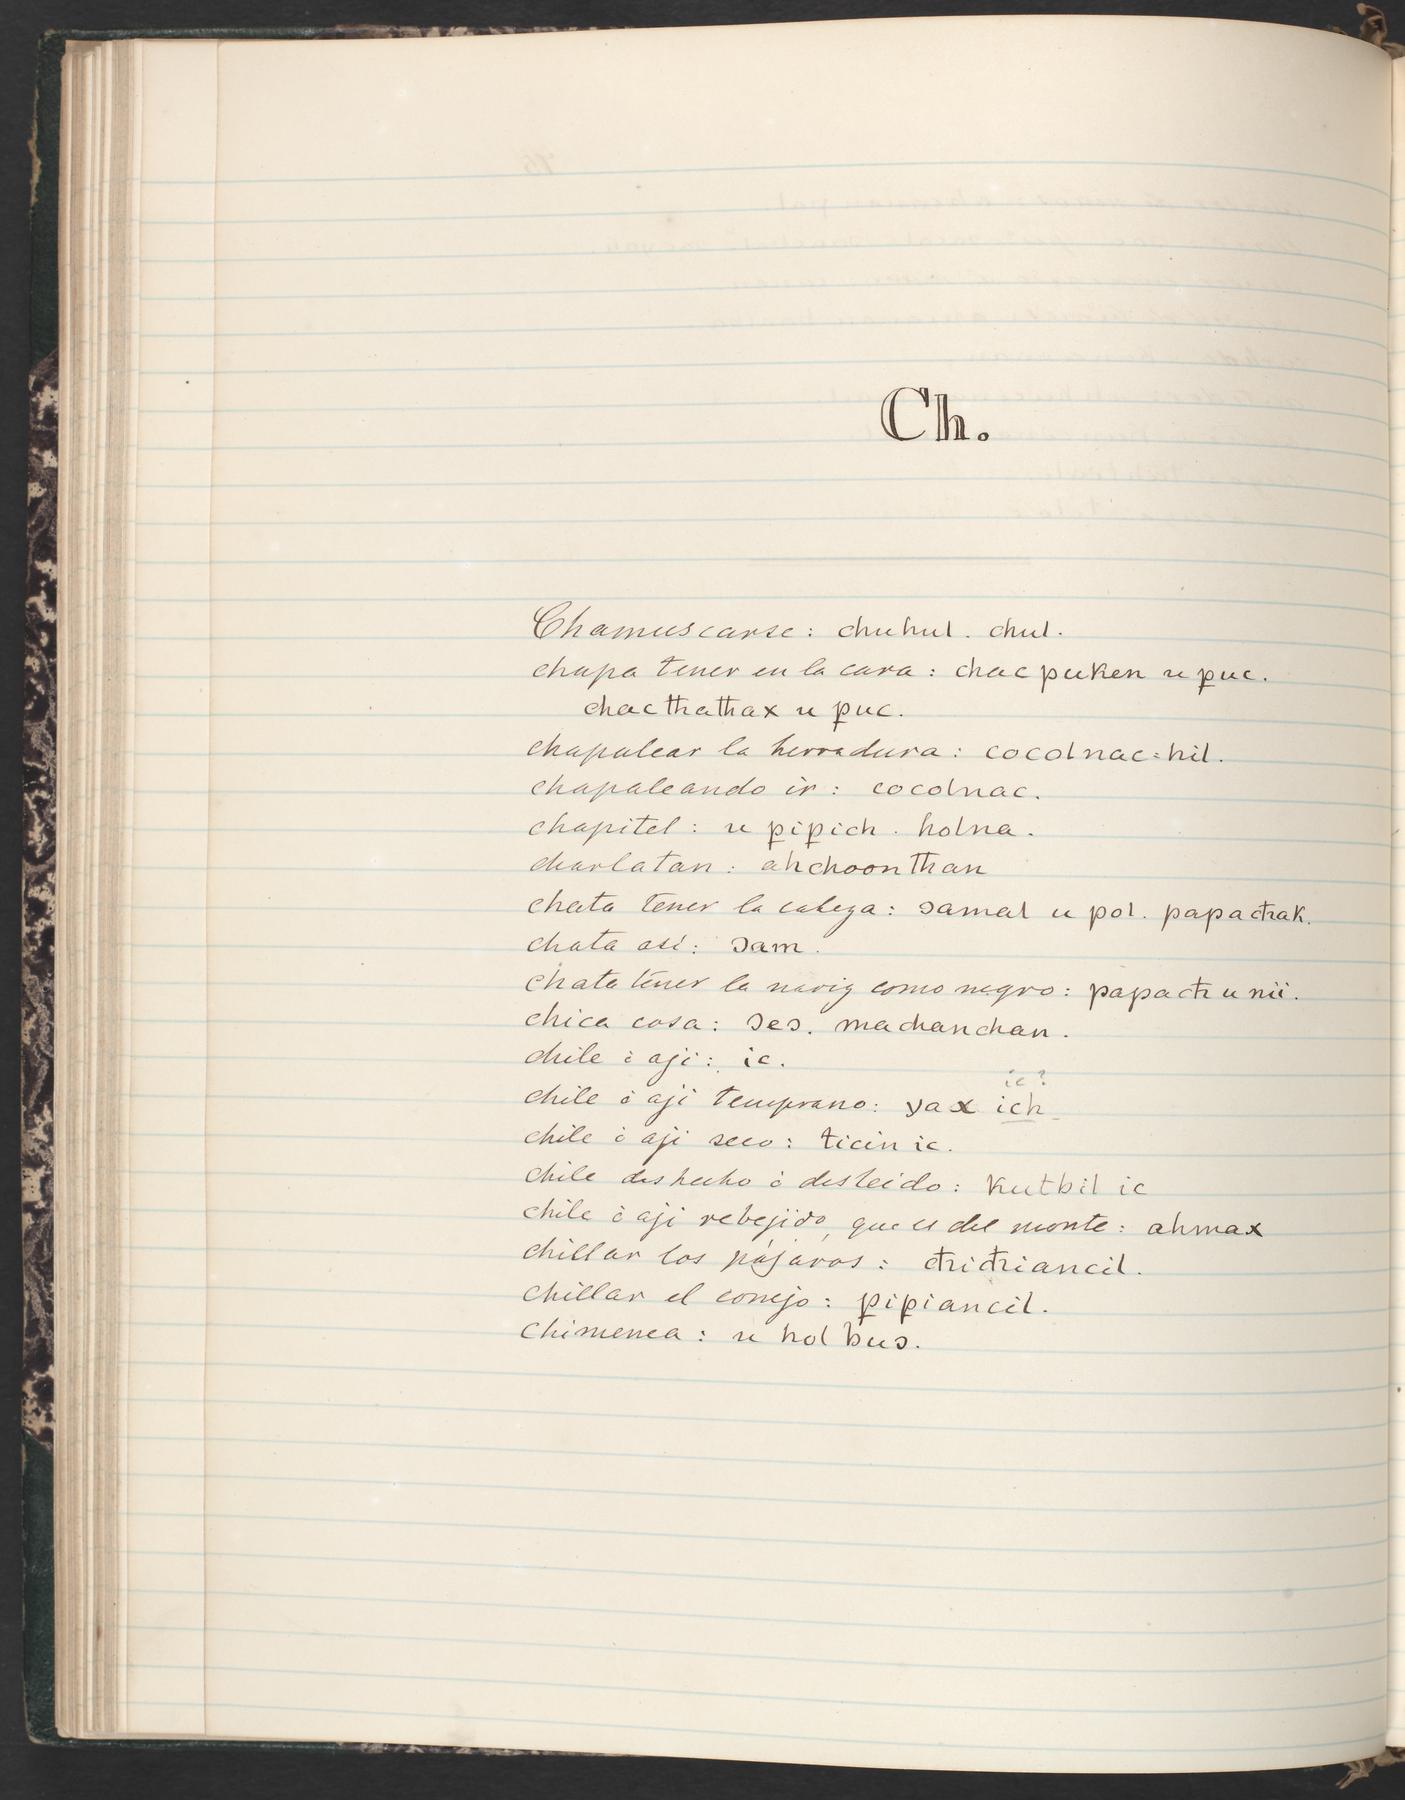 Ch.
Chamuscarse: chuhul. chul.
chapa tener en la cara: chac puken u ꝑuc.
chac thathax u ꝑuc.
chapalear la herradura: cocolnac=hil.
chapaleando ir: cocolnac.
chapitel: u ꝑiꝑich. holna.
charlatan: ahchoonthan
chata tener la cabeza: ɔamal u pol. papacħak.
chata asi: ɔam.
chata tener la nariz como negro: papacħ u nii.
chica cosa: ɔeɔ. machanchan.
chile ò aji: ic.
ic?
chile ò aji temprano: yax ich
chile ò aji seco: ticin ic.
chile deshecho ò desleido: kutbil ic
chile ò aji rebejido, que es del monte: ahmax
chillar los pájaros: cħicħiancil.
chillar el conejo: ꝑiꝑiancil.
chimenea: u hol buɔ.